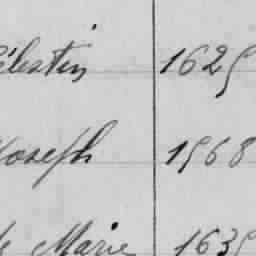 Célestin 1625
Joseph 1568
Marie 1635